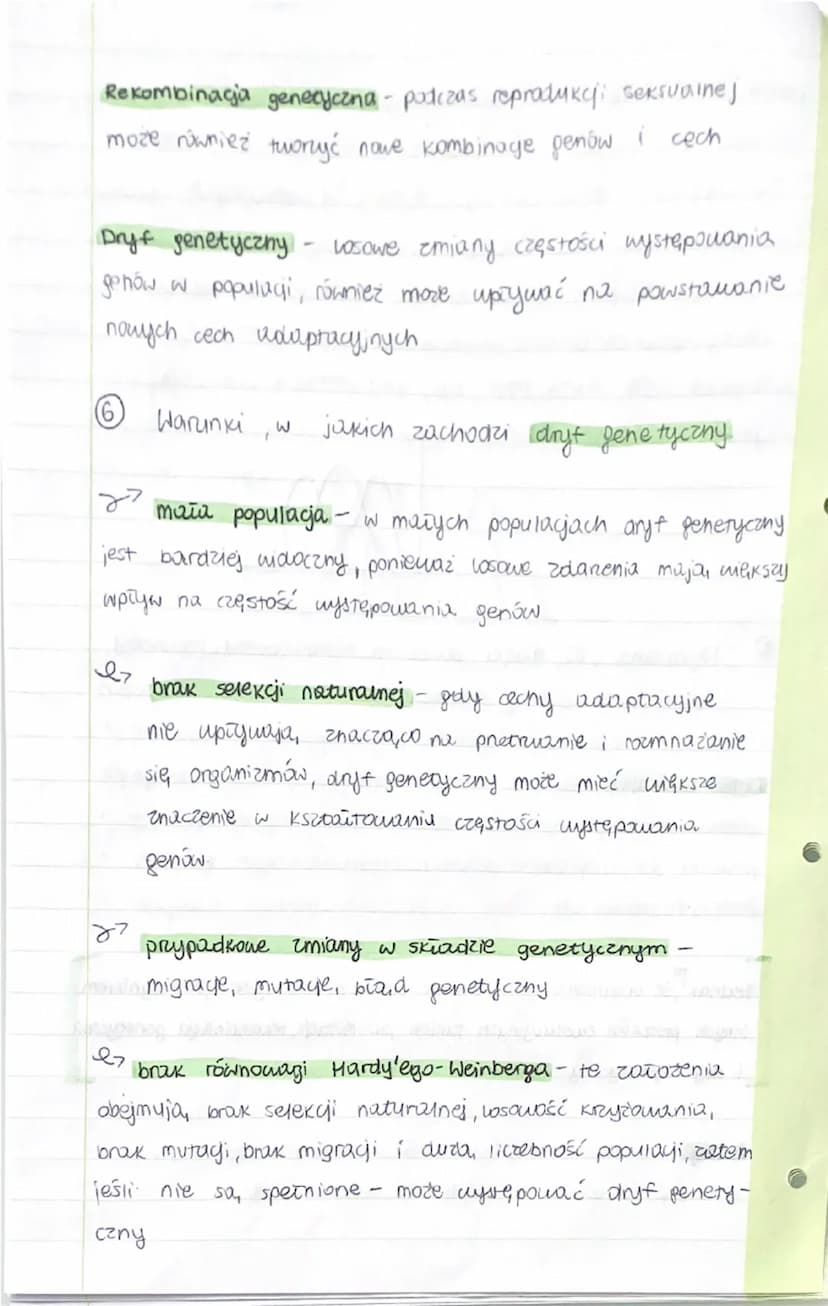 Rekombinacja genetyczna - podczas reprodukcji seksualnej
może również tworzyć nowe kombinacje genów i cech
Dryf genetyczny - losowe zmiany częstości występowania
genów w populacji, również może wpływać na powstawanie
nowych cech adaptacyjnych
⑥ Warunki, w jakich zachodzi dryf genetyczny
mała populacja - w małych populacjach dryf genetyczny
jest bardziej widoczny, ponieważ losowe zdarzenia mają większy
wpływ na częstość występowania genów
brak selekcji naturalnej - gdy cechy adaptacyjne
nie wpływają znacząco na przetrwanie i rozmnażanie
się organizmów, dryf genetyczny może mieć większe
znaczenie w kształtowaniu częstości występowania
genów
przypadkowe zmiany w składzie genetycznym -
migracje, mutacje, błąd genetyczny
brak równowagi Hardy'ego-Weinberga - te założenia
obejmują brak selekcji naturalnej, losowość krzyżowania,
brak mutacji, brak migracji i duża liczebność populacji, zatem
jeśli nie są spełnione - może występować dryf genety-
czny